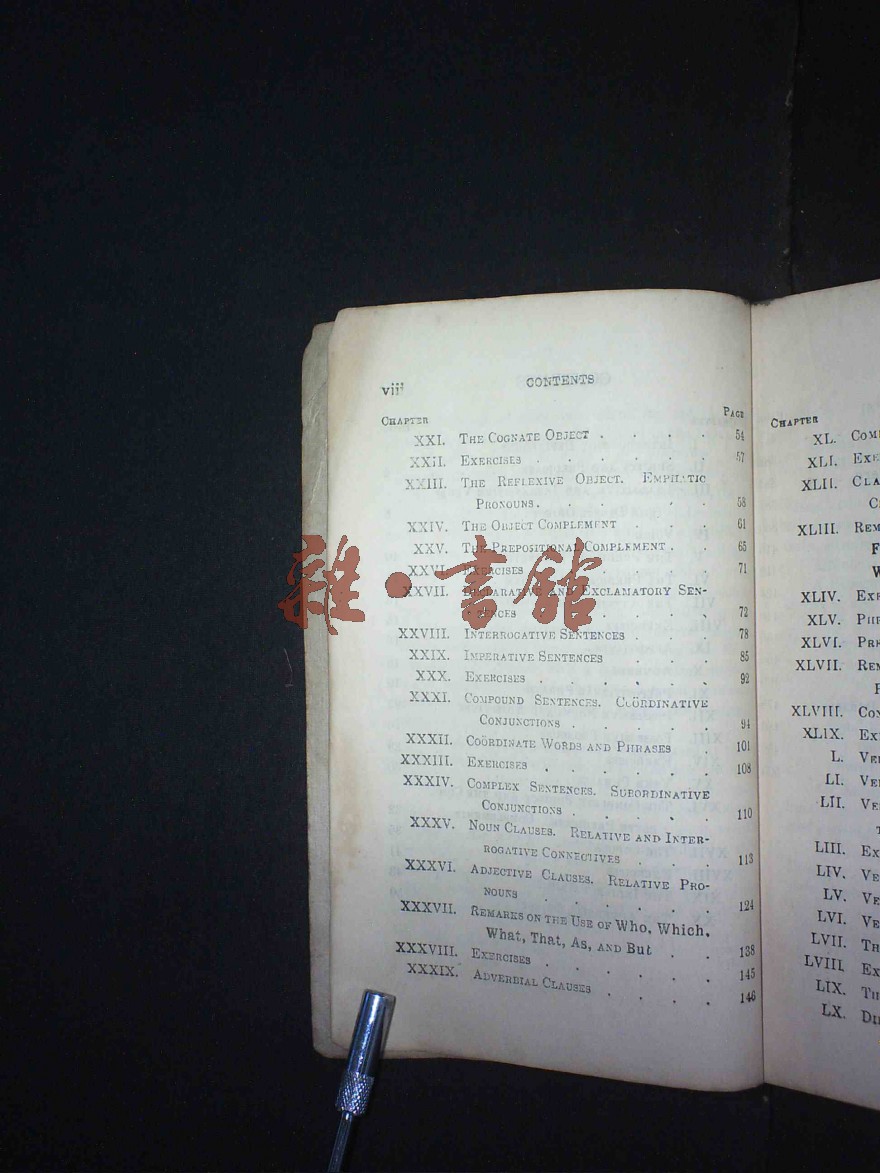 viii
CONTENTS
CHAPTER PAGE
XXI. THE COGNATE OBJECT . . . . 54
XXII. EXERCISES . . . . . . 57
XXIII. THE REFLEXIVE OBJECT. EMPHATIC
PRONOUNS. . . . . . 58
XXIV. THE OBJECT COMPLEMENT . . . 61
XXV. THE PREPOSITIONAL COMPLEMENT . . 65
XXVI. EXERCISES . . . . . . 71
XXVII. DECLARATIVE AND EXCLAMATORY SEN-
TENCES . . . . . . 72
XXVIII. INTERROGATIVE SENTENCES . . . 78
XXIX. IMPERATIVE SENTENCES . . . 85
XXX. EXERCISES . . . . . . 92
XXXI. COMPOUND SENTENCES. COÖRDINATIVE
CONJUNCTIONS . . . . . 94
XXXII. COÖRDINATE WORDS AND PHRASES . 101
XXXIII. EXERCISES . . . . . . 108
XXXIV. COMPLEX SENTENCES. SUBORDINATIVE
CONJUNCTIONS . . . . . 110
XXXV. NOUN CLAUSES. RELATIVE AND INTER-
ROGATIVE CONNECTIVES . . . 113
XXXVI. ADJECTIVE CLAUSES. RELATIVE PRO-
NOUNS . . . . . . 124
XXXVII. REMARKS ON THE USE OF Who, Which,
What, That, As, AND But . . 138
XXXVIII. EXERCISES . . . . . . 145
XXXIX. ADVERBIAL CLAUSES . . . . 146
CHAPTER
XL.
XLI.
XLII.
XLIII.
XLIV.
XLV.
XLVI.
XLVII.
XLVIII.
XLIX.
L.
LI.
LII.
LIII.
LIV.
LV.
LVI.
LVII.
LVIII.
LIX.
LX.
雜·書館